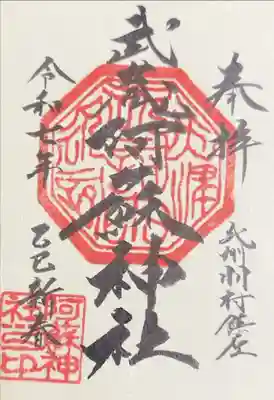 奉拝
武州羽村鎮座
武蔵阿蘇神社
令和七年
乙巳新春
阿蘇神
社之印